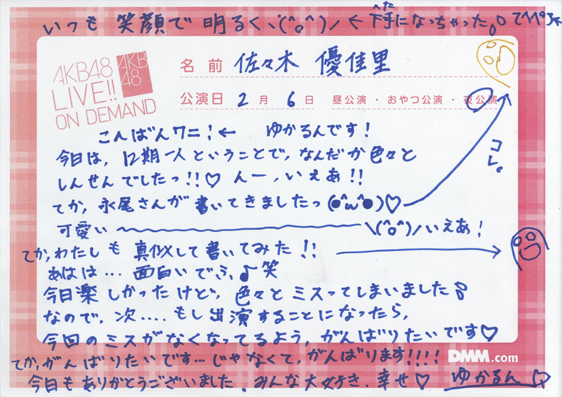 いつも 笑顔で 明るくヽ(^o^)ノ ←下手になっちゃった。
へた
AKB48
LIVE!!
ON DEMAND
AKB
48
名前 佐々木 優佳里
公演日 2月 6日 昼公演・おやつ公演・夜公演
こんばんワニ!← ゆかるんです!
今日は、12期一人ということで、なんだか色々と
しんせんでしたっ!!♡ んー、いぇあ!!
てか、永尾さんが書いてきましたっ(●^ω^●)♡
コレ。
可愛い 〜〜〜 \(^o^)/いぇあ!
てか、わたしも 真似して書いてみた!!
あはは… 面白いでふ♪笑
今日楽しかったけど、色々とミスってしまいました
なので、次.... もし出演することになったら、
今回のミスがなくなってるよう、がんばりたいです♡
てか、がんばりたいです…じゃなくて、がんばります!!!!
DMM.com
今日もありがとうございました。みんな大好き、幸せ♡ ゆかるん